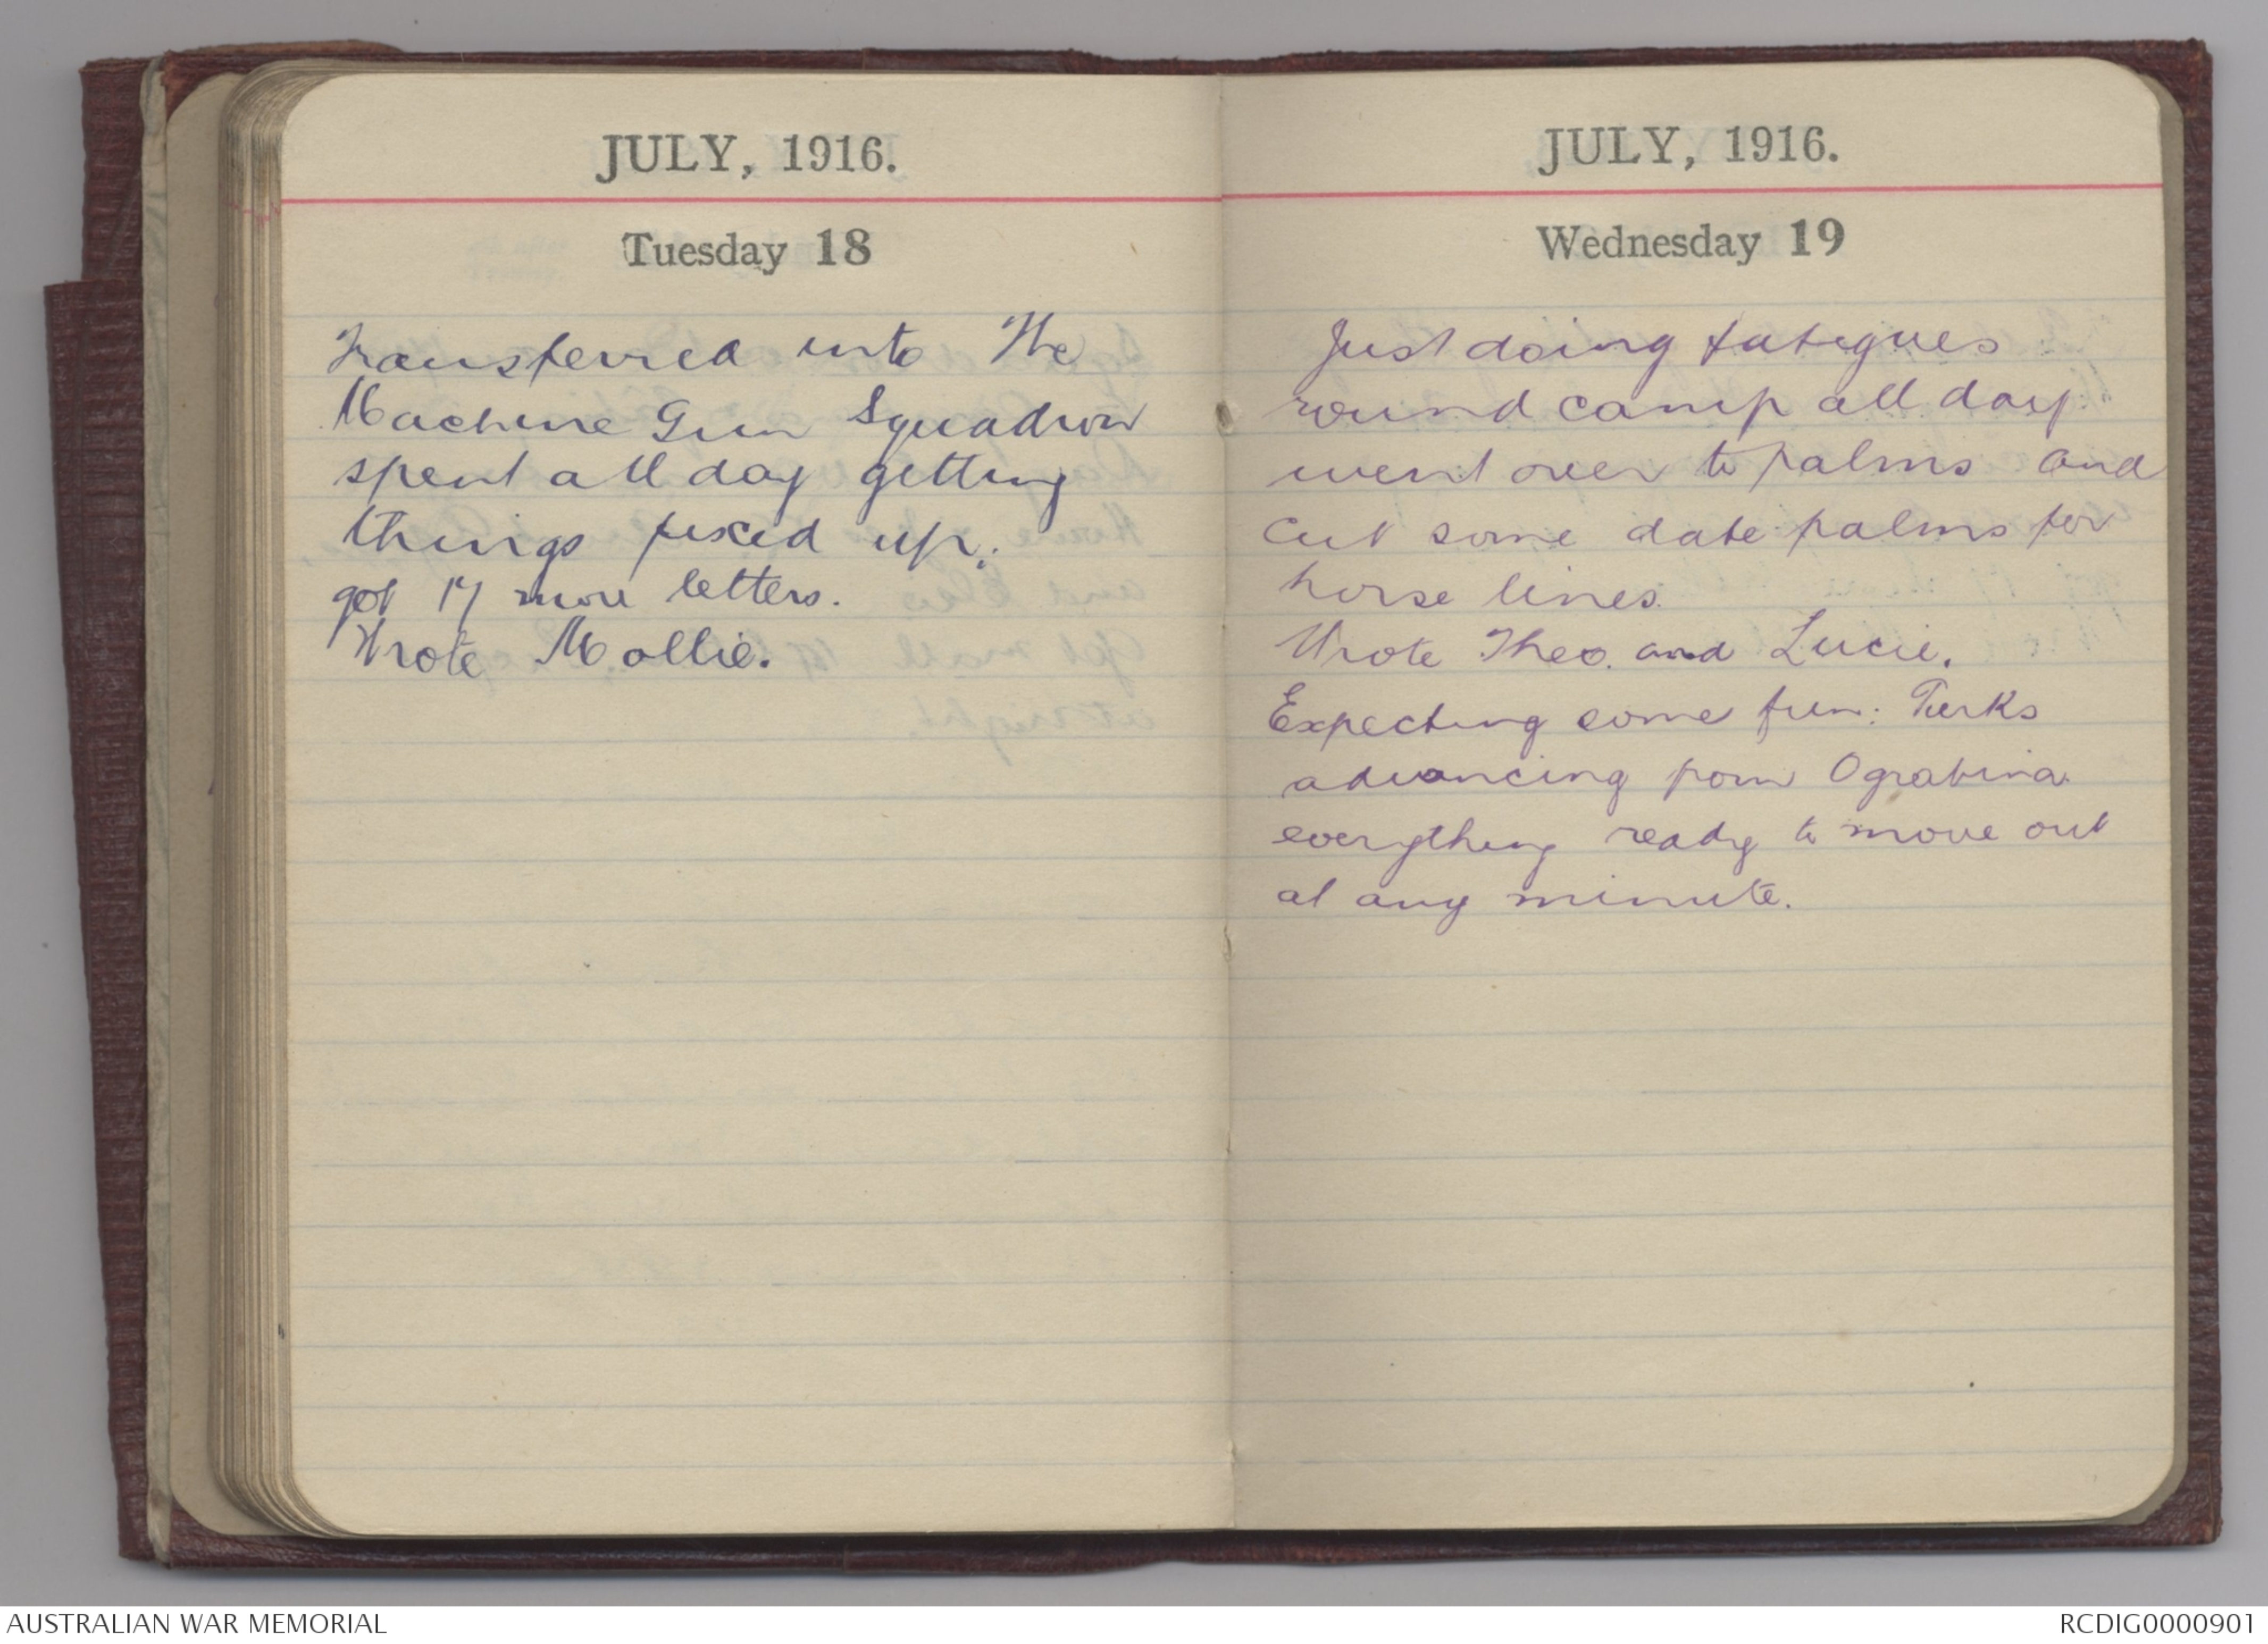 JULY, 1916.
Tuesday 18
Transferred into The
Machine Gun Squadron
spent all day getting
things fixed up.
got 17 more letters.
Wrote Mollie.
JULY, 1916.
Wednesday 19
Just doing fatigues
round camp all day
went over to palms and
cut some date palms for
horse lines.
Wrote Theo. and Lucie.
Expecting some fun: Turks
advancing from Ogratina
everything ready to move out
at any minute.
AUSTRALIAN WAR MEMORIAL
RCDIG0000901